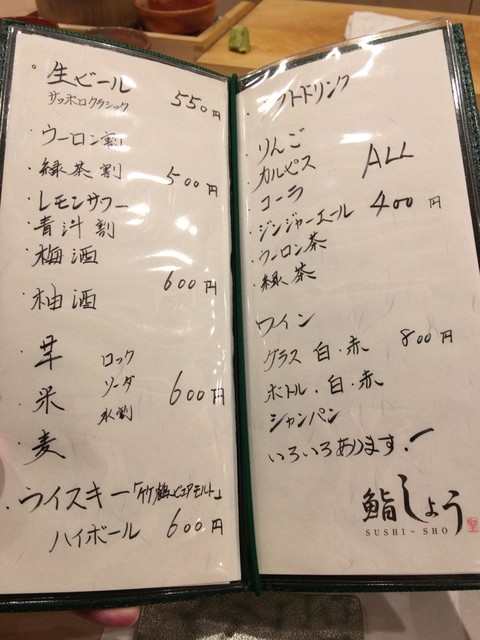 生ビール
サッポロクラシック 550円
・ウーロン割
・緑茶割 500円
・レモンサワー
・青汁割
・梅酒
・柚酒 600円
・芋 ロック
・米 ソーダ 600円
・麦 水割
・ウイスキー「竹鶴ピュアモルト」
ハイボール 600円
ソフトドリンク
・りんご
・カルピス ALL
・コーラ
・ジンジャーエール 400円
・ウーロン茶
・緑茶
ワイン
グラス 白・赤 800円
ボトル・白・赤
シャンパン
いろいろあります!
鮨しょう
SUSHI-SHO